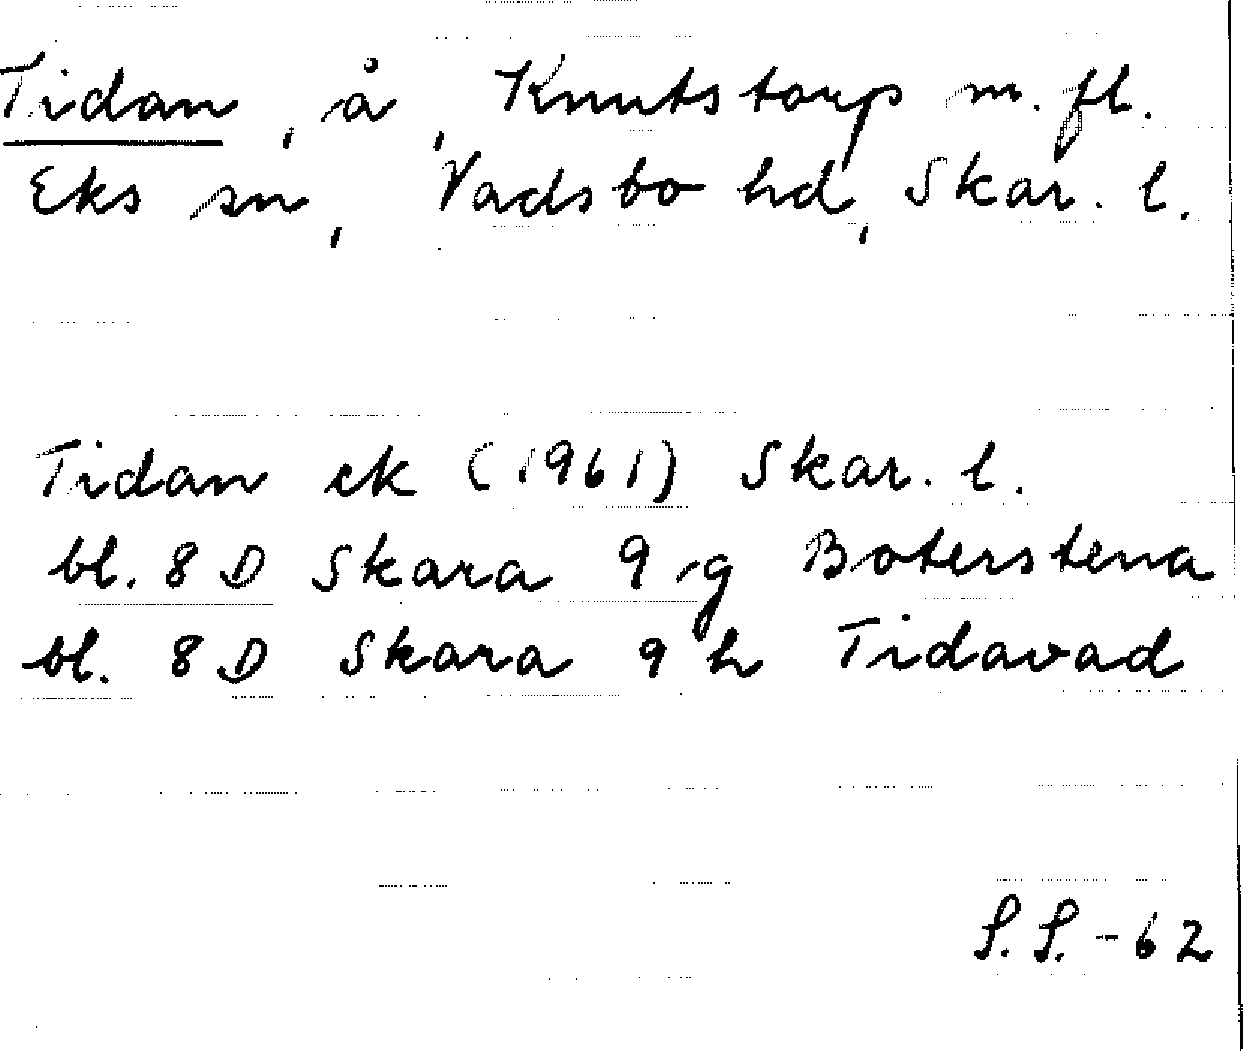 Tidan, å, Knutstorp m. fl.
Eks sn, Vadsbo hd, Skar. l.
Tidan ek (1961) Skar. l.
bl. 8 D Skara 9 g Boterstena
bl. 8 D Skara 9 h Tidavad
S. S. - 62